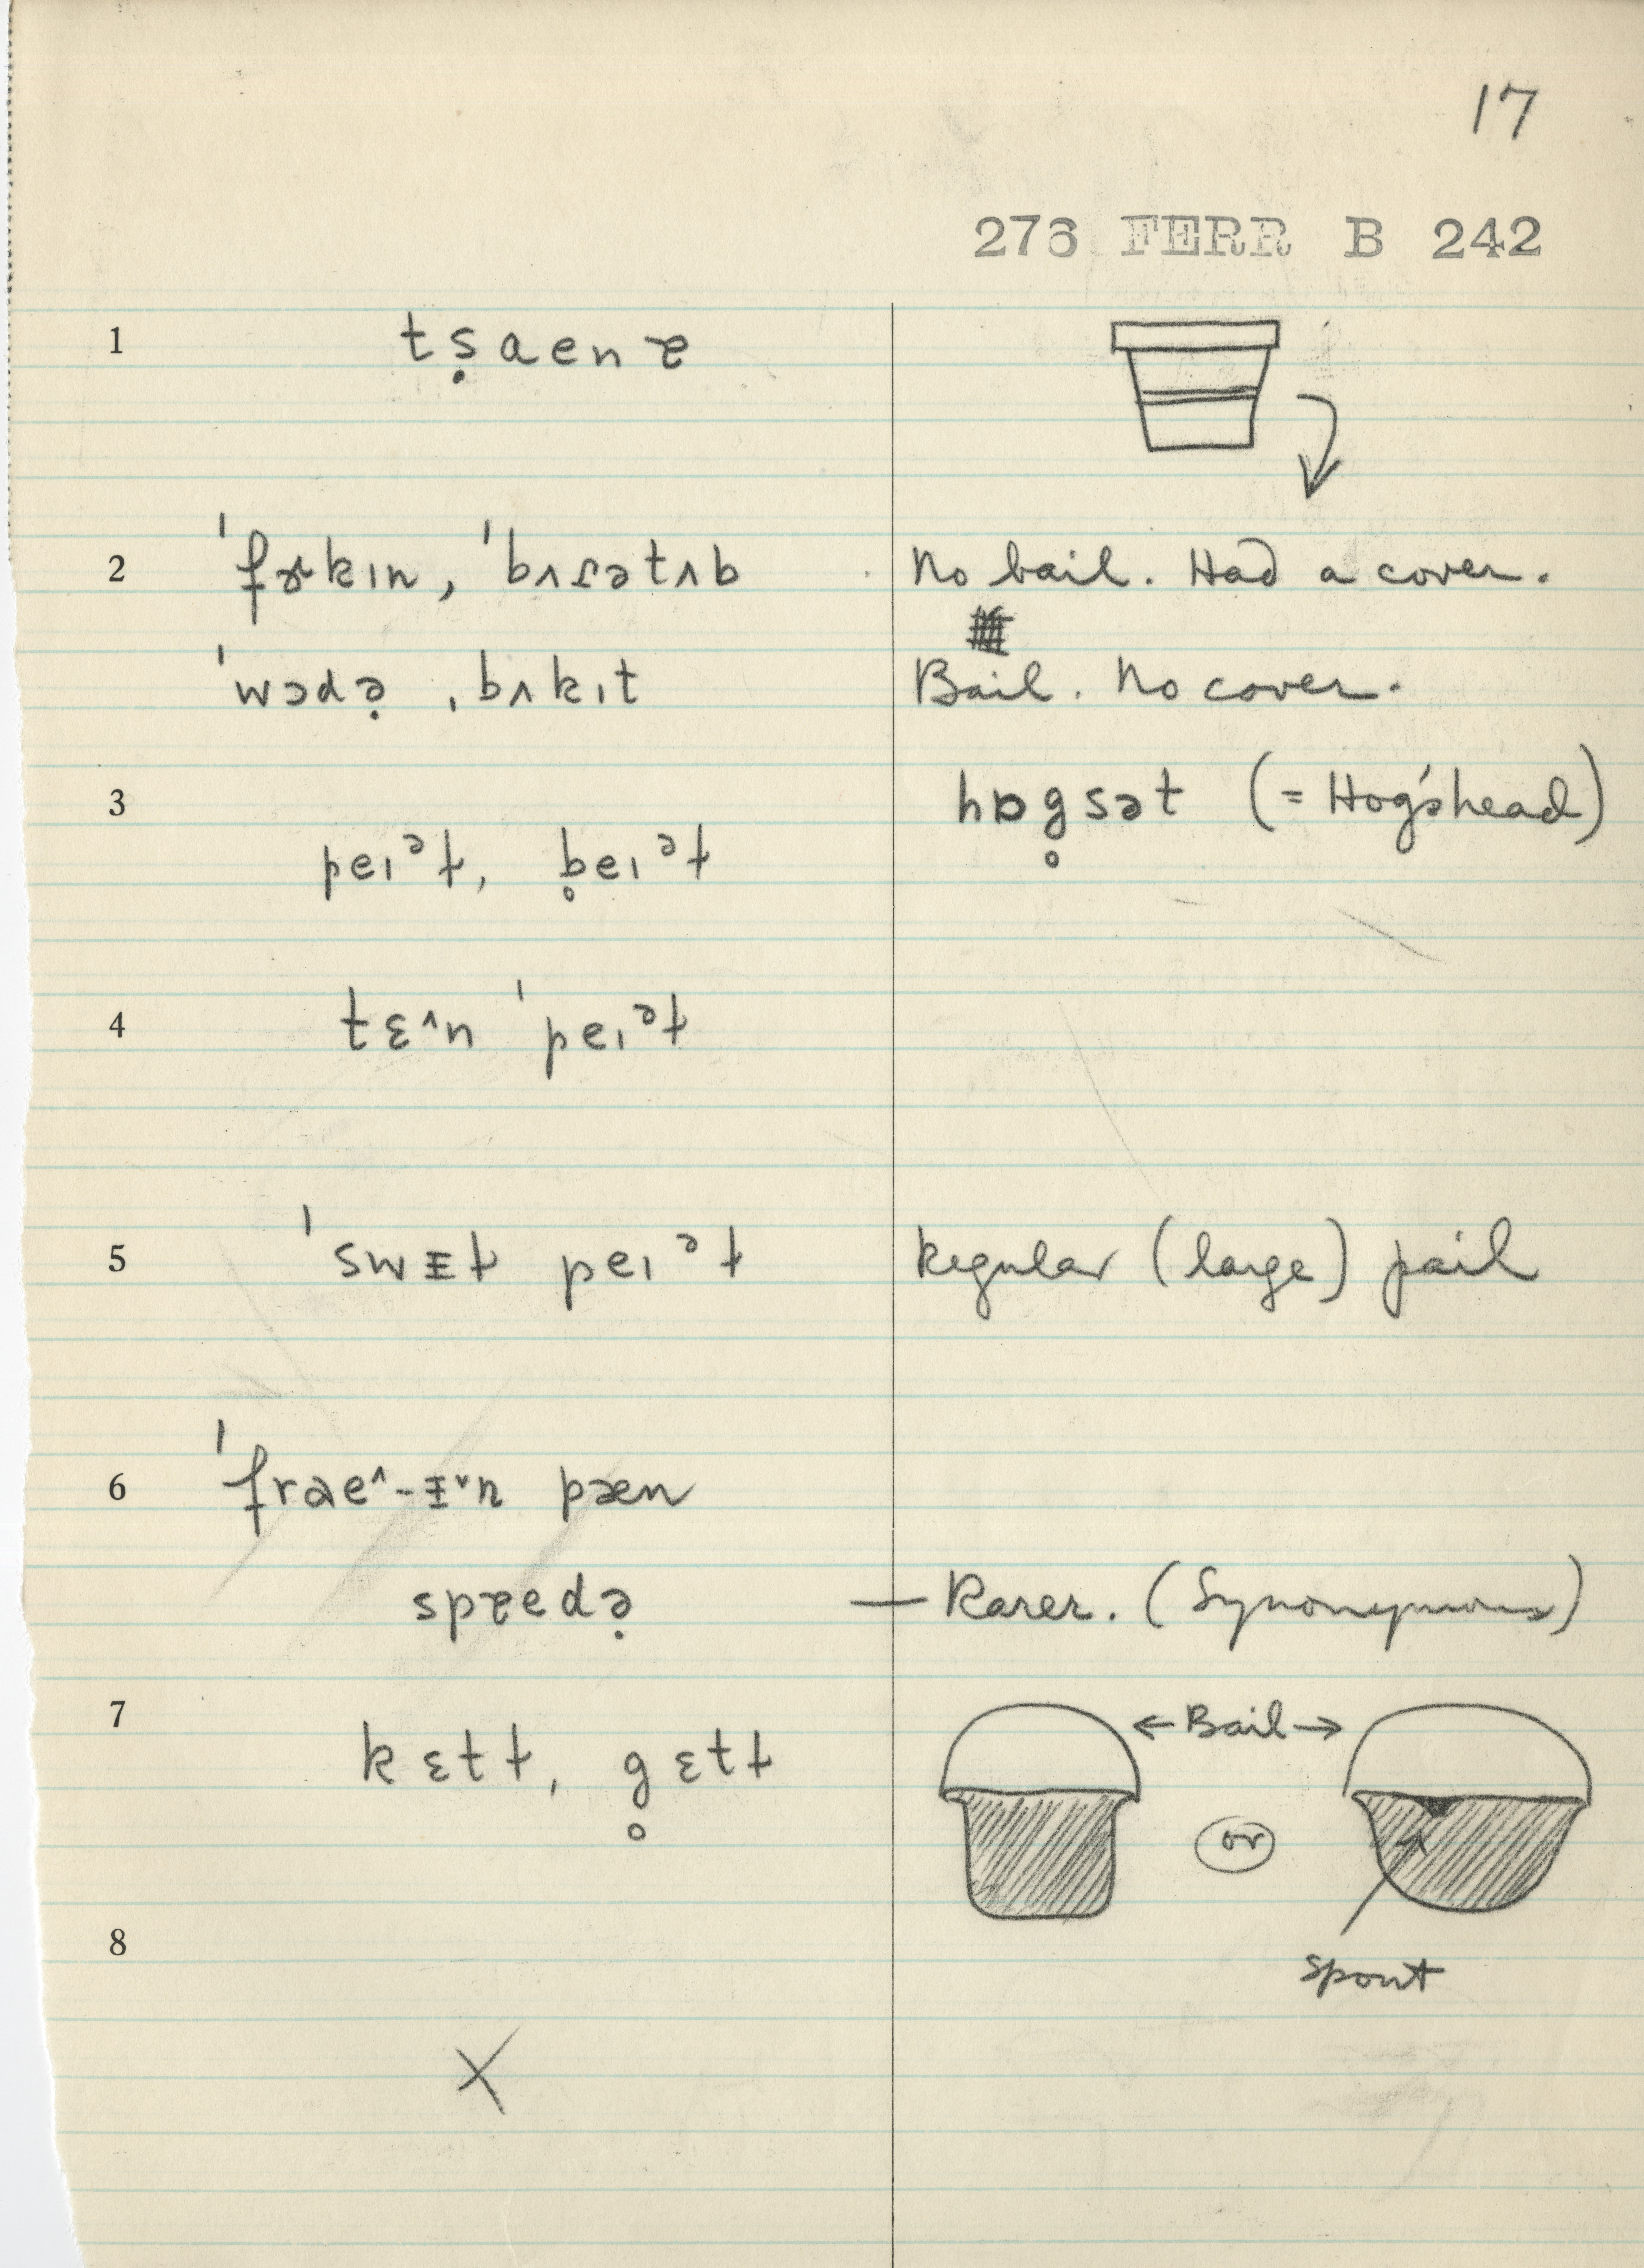 17
276 FERR B 242
1 tṣaenɐ
2 ˈfɚkɪn, ˈbʌɾətʌb No bail. Had a cover.
ˈwɔdə̣ , bʌkɪt Bail. No cover.
3 hɒg̥sət (= Hog'shead)
peɪᵊɫ, b̥eɪᵊɫ
4 tɛ^n ˈpeɪᵊɫ
5 ˈswɪɫ peɪᵊɫ Regular (large) pail
6 ˈfrae^-ɪˇn pæn
spɐedə̣ — Rarer. (Synonymous)
7 kɛtɫ, g̥ɛtɫ ← Bail →
or
8
spout
X